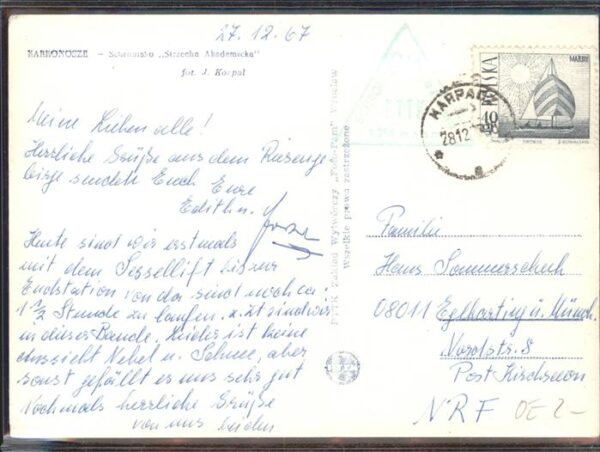 27.12.67
KARKONOSZE – Schronisko „Strzecha Akademicka"
fot. J. Korpal
Meine Lieben alle!
Herrliche Grüße aus dem Riesenge
birge senden Euch Eure
Edith u.
Heute sind wir erstmals
mit dem Sessellift bis zur
Endstation von da sind noch ca.
1 1/2 Stunde zu laufen. z.Zt sind wir
in dieser Baude. Leider ist keine
Aussicht Nebel u. Schnee, aber
sonst gefällt es uns sehr gut
Nochmals herrliche Grüße
von uns beiden
PTTK Zakład Wytwórczy „Foto-Pam" Wrocław
Wszelkie prawa zastrzeżone
PTTK
KARPACZ
28.12
POLSKA
40
GR
MAZURY
Familie
Hans Sommerschuh
08011 Eglharting ü. Münch.
Nordstr. 8
Post Kirchseeon
NRF
OE 2-